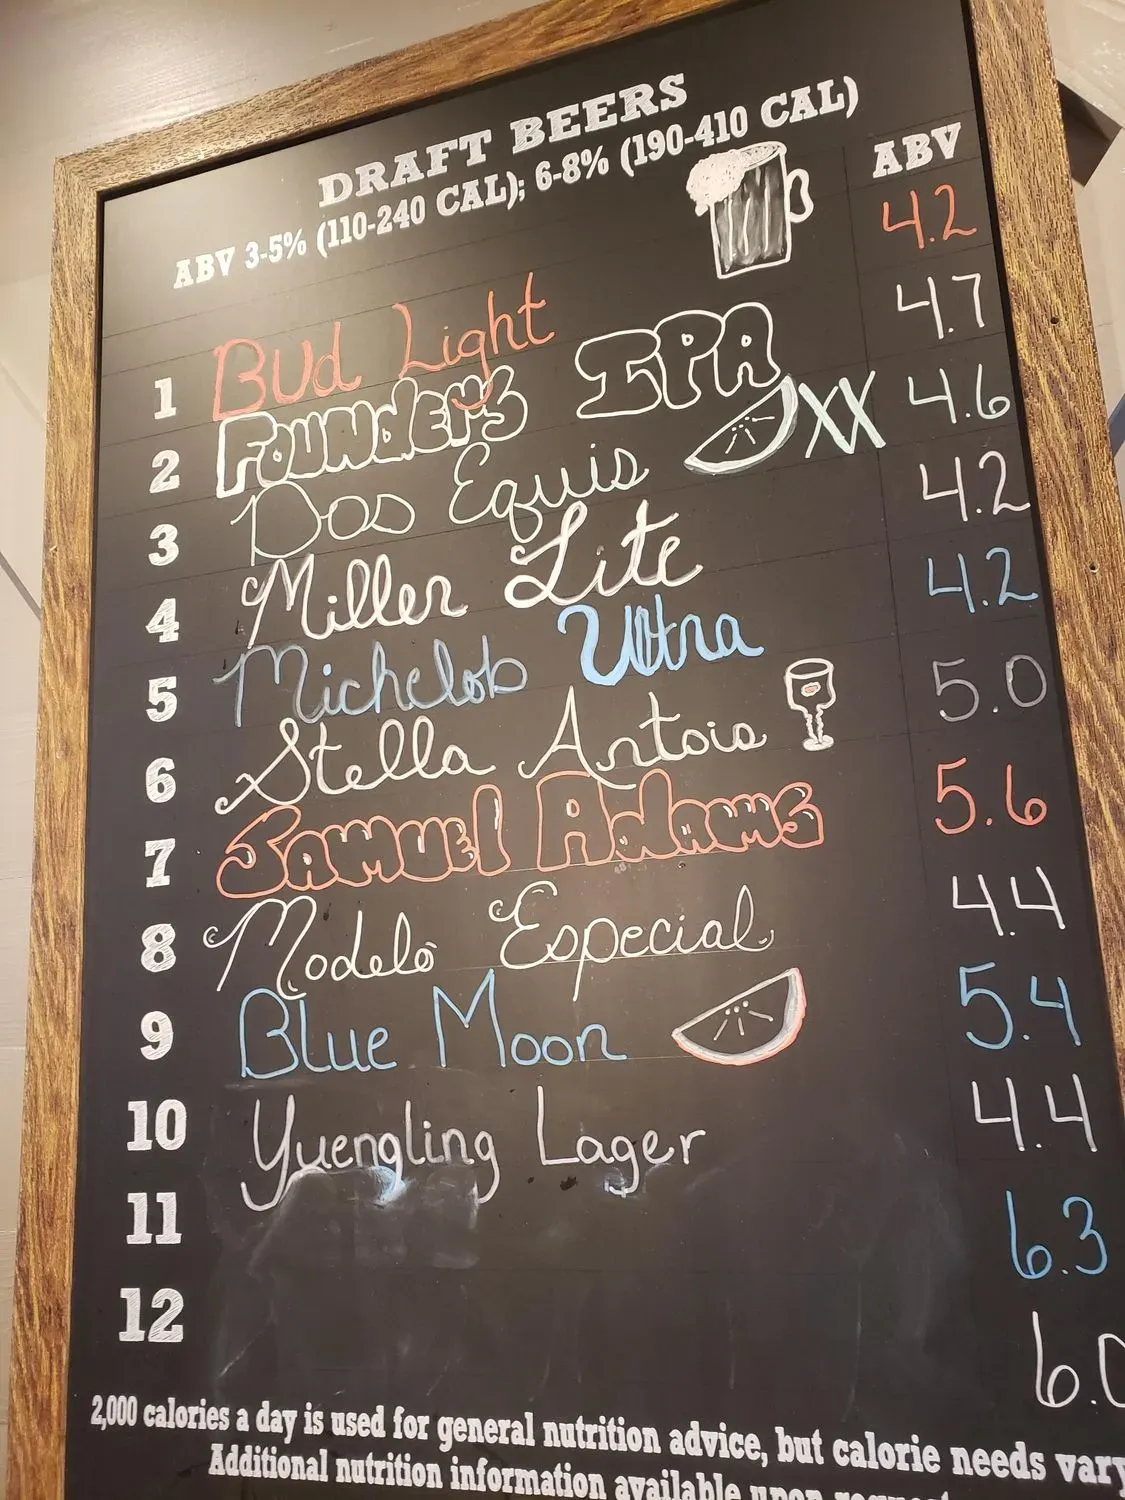 DRAFT BEERS
ABV 3-5% (110-240 CAL); 6-8% (190-410 CAL)
ABV
1 Bud Light 4.2
2 Founders IPA 4.7
3 Dos Equis XX 4.6
4 Miller Lite 4.2
5 Michelob Ultra 4.2
6 Stella Antois 5.0
7 Samuel Adams 5.6
8 Modelo Especial 4.4
9 Blue Moon 5.4
10 Yuengling Lager 4.4
11 6.3
12 6.0
2,000 calories a day is used for general nutrition advice, but calorie needs vary
Additional nutrition information available upon request